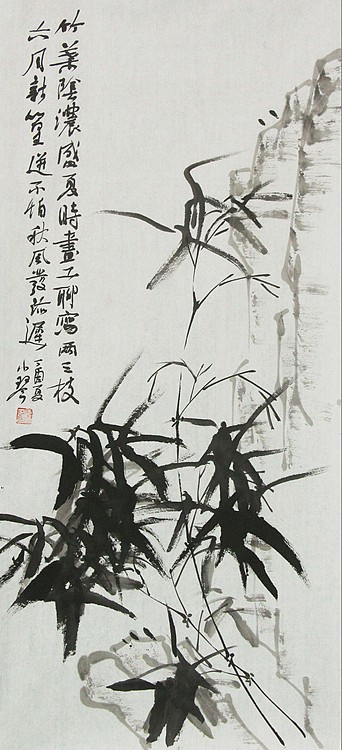 竹葉陰濃盛夏時畫工聊寫兩三枝
六月新篁迸不怕秋風發跡遲
丁酉夏